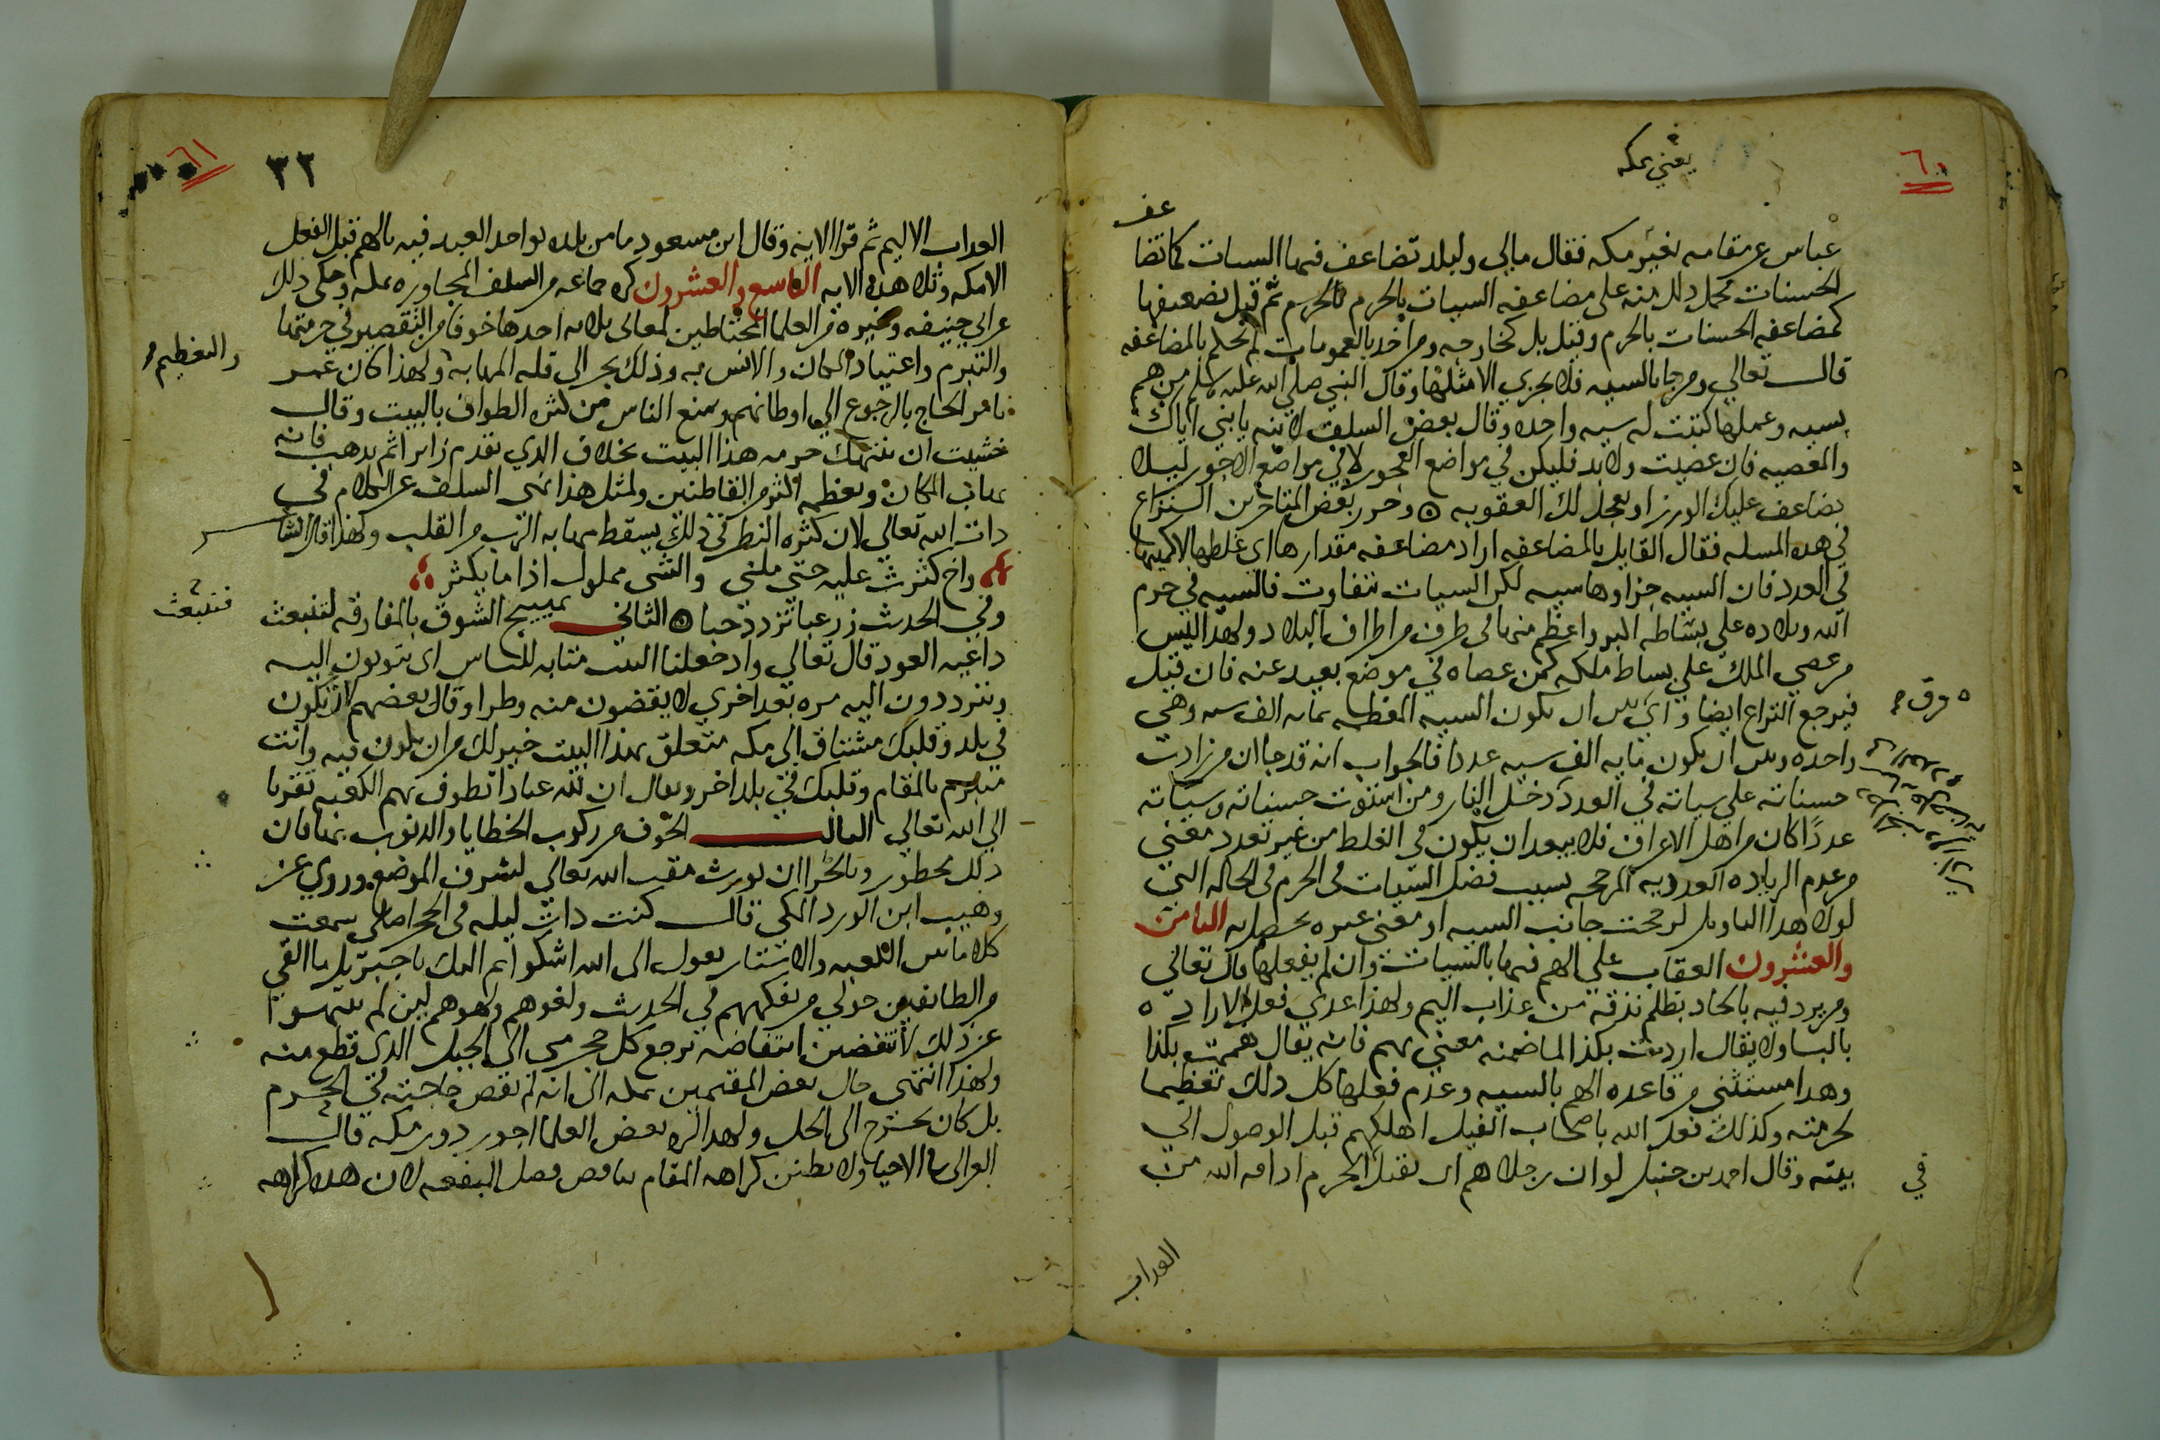 ٦٠
يعني بمكه
عباس عن مقامه بغير مكه فقال مالي ولبلد تضاعف فيها السيات كما تضا
عف
الحسنات فحمل ذلك منه على مضاعفه السيات بالحرم ثم قيل تضعيفها
كمضاعفه الحسنات بالحرم وقيل بل كخارجه ومن اخذ بالعمومات لم يحكم بالمضاعفه
قال تعالي ومن جا بالسيه فلا يجزي الا مثلها وقال النبي صلي الله عليه وسلم من هم
بسيه وعملها كتبت له سيه واحده وقال بعض السلف لابنه يا بني اياك
والمعصيه فان عصيت ولابد فليكن في مواضع الفجور لا في مواضع الاجور ليلا
يضاعف عليك الوزر او تعجل لك العقوبه ۞ وحرر بعض المتاخرين النزاع
في هذه المسله فقال القايل بالمضاعفه اراد مضاعفه مقدارها اي غلظها لا كميتها
في العدد فان السيه جزاوها سيه لكن السيات تتفاوت فالسيه في حرم
الله وبلاده علي بساطه اكبر واعظم منها في طرف من اطراف البلاد ولهذا ليس
من عصي الملك علي بساط ملكه كمن عصاه في موضع بعيد عنه فان قيل
فيرجع النزاع ايضا واي فرق بين ان تكون السيه المغلظه بمايه الف سيه وهي
واحده وبين ان تكون مايه الف سيه عددا فالجواب انه قد جا ان من زادت
حسناته علي سياته في العدد دخل النار ومن استوت حسناته وسياته
عددًا كان من اهل الاعراف فلا يبعد ان يكون في الغلظ من غير تعدد معني
من عدم الزياده العدديه المرجحه بسبب فضل السيات في الحرم في الحاله التي
لولا هذا التاويل لرجحت جانب السيه او معني غيره يحصل به الثامن
والعشرون العقاب علي الهم فيها بالسيات وان لم يفعلها قال تعالي
ومن يرد فيه بالحاد بظلم نذقه من عذاب اليم ولهذا عدي فعل الاراده
بالبا ولا يقال اردت بكذا لما ضمنه معني يهم فانه يقال هممت بكذا
وهذا مستثني من قاعده الهم بالسيه وعدم فعلها كل ذلك تعظيما
لحرمته وكذلك فعل الله باصحاب الفيل اهلكهم قبل الوصول الي
بيته وقال احمد بن حنبل لو ان رجلا هم ان يقتل في الحرم اذاقه الله من
العذاب
٦١
٣٢
العذاب الاليم ثم قرا الايه وقال ابن مسعود ما من بلده يواخذ العبد فيه بالهم قبل الفعل
الا مكه وتلا هذه الايه التاسع والعشرون كره جماعه من السلف المجاوره بمكه وحكي ذلك
عن ابي حنيفه وغيره من العلما المحتاطين لمعاني ثلاثه احدها خوفا من التقصير في حرمتها
والتبرم واعتياد المكان والانس به وذلك يجر الي قله المهابه والتعظيم ولهذا كان عمر
يامر الحاج بالرجوع الي اوطانهم ويمنع الناس من كثره الطواف بالبيت وقال
خشيت ان تنتهك حرمه هذا البيت بخلاف الذي يقدم زايرا ثم يذهب فانه
يهاب المكان ويعظمه اكثر من القاطنين ولمثل هذا نهى السلف عن الكلام في
ذات الله تعالي لان كثره النظر في ذلك يسقط مهابه الرب من القلب ولهذا قال الشاعر
واخ كثرت عليه حتى ملني والشي مملول اذا ما يكثر
وفي الحديث زر غبا تزدد حبا ۞ الثاني تهييج الشوق بالمفارقه لتنبعث
فتنبعث
داعيه العود قال تعالي واذ جعلنا البيت مثابه للناس اي يثوبون اليه
ويترددون اليه مره بعد اخري لا يقضون منه وطرا وقال بعضهم لان تكون
في بلد وقلبك مشتاق الى مكه متعلق بهذا البيت خير لك من ان تكون فيه وانت
متبرم بالمقام وقلبك في بلد اخر ويقال ان لله عبادا تطوف بهم الكعبه تقربا
الي الله تعالي الثالث الخوف من ركوب الخطايا والذنوب بها فان
ذلك محظور وبالحرا ان يورث مقت الله تعالي لشرف الموضع وروي عن
وهيب ابن الورد المكي قال كنت ذات ليله في الحجر اصلي سمعت
كلاما بين الكعبه والاستار يقول الى الله اشكوا ثم اليك يا جبريل ما القي
من الطايفين حولي من تفكههم في الحديث ولغوهم ولهوهم لين لم ينتهوا
عن ذلك لانتفضن انتفاضه ترجع كل حجر مني الى الجبل الذي قطع منه
ولهذا انتهى حال بعض المقيمين بمكه الى انه لم يقض حاجته في الحرم
بل كان يخرج الى الحل ولهذا كره بعض العلما اجور دور مكه قال
الغزالي في الاحيا ولا تظنن كراهه المقام يناقض فضل البقعه لان هذه كراهه